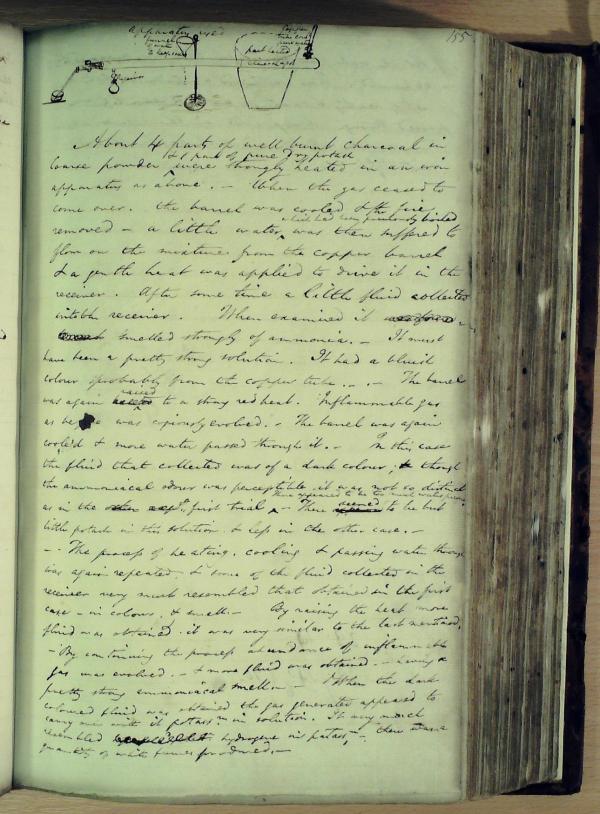 apparatus used
155
part heated
Receiver
About 4 parts of well burnt charcoal in
& 1 part of pure dry potash
coarse powder were strongly heated in an iron
apparatus as above. – When the gas ceased to
come over. the barrel was cooled & the fire
which had been previously boiled
removed – a little water was then suffered to
flow on the mixture from the copper barrel
& a gentle heat was applied to drive it in the
receiver. After some time a little fluid collected
into the receiver. When examined it
smelled strongly of ammonia. – It must
have been a pretty strong solution. It had a bluish
colour probably from the copper tube. – . – The barrel
raised
was again to a strong red heat. Inflammable gas
as before was copiously evolved. – The barrel was again
cooled & more water passed through it. – In this case
the fluid that collected was of a dark colour, & though
the ammoniacal odour was perceptible it was not so distinct
There appeared to be too much water
as in the first trial – There seemed to be but
little potash in this solution & less in the other case. –
– . The process of heating, cooling & passing water through
was again repeated, & some of the fluid collected in the
receiver very much resembled that obtained in the first
case – in colour, & smell. – By raising the heat more
fluid was obtained. it was very similar to the last mentioned.
– By continuing the process abundance of inflammable
gas was evolved. – & more fluid was obtained. – having a
pretty strong ammoniacal smell. – When the dark
coloured fluid was obtained the gas generated appeared to
carry over with it potass in solution. It very much
resembled hydrogene – there was a
quantity of white fumes produced. –